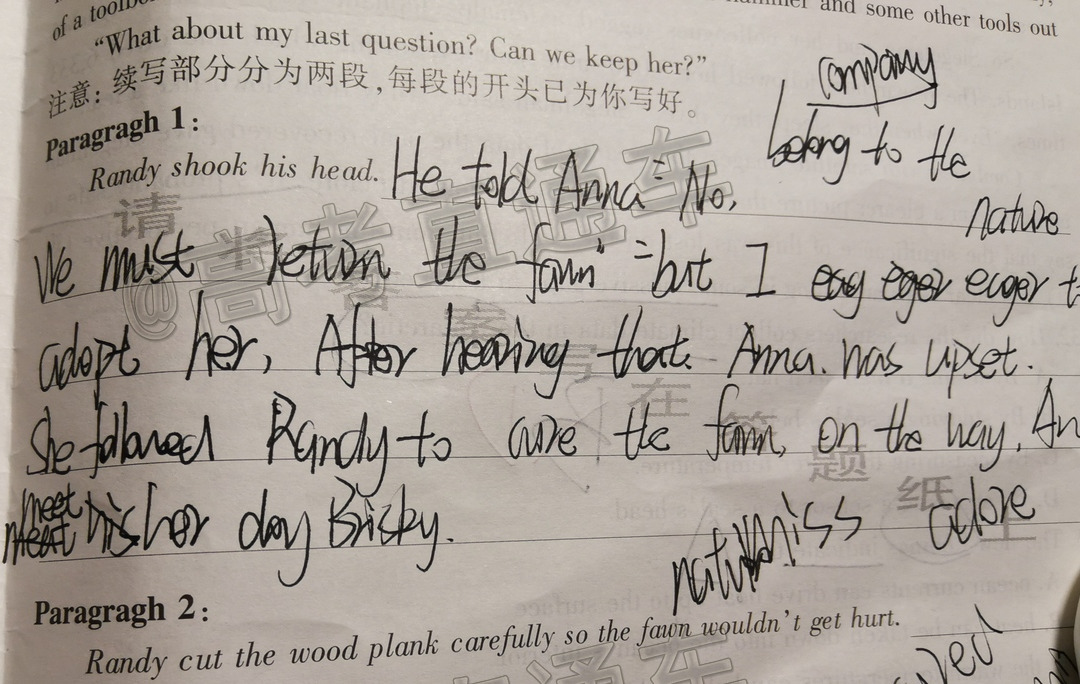 of a toolbo
and some other tools out
"What about my last question? Can we keep her?"
注意：续写部分分为两段，每段的开头已为你写好。
company
Paragragh 1：
belong to the
Randy shook his head. He told Anna "No,
nature
We must return the fawn" but I eager t
adopt her, After hearing that. Anna. was upset.
She followed Randy to cure the fawn, on the way, An
meet his her dog Brisby.
adore
Paragragh 2：
Randy cut the wood plank carefully so the fawn wouldn't get hurt.
请
答
案
写
在
答
题
纸
上
@高考直通车